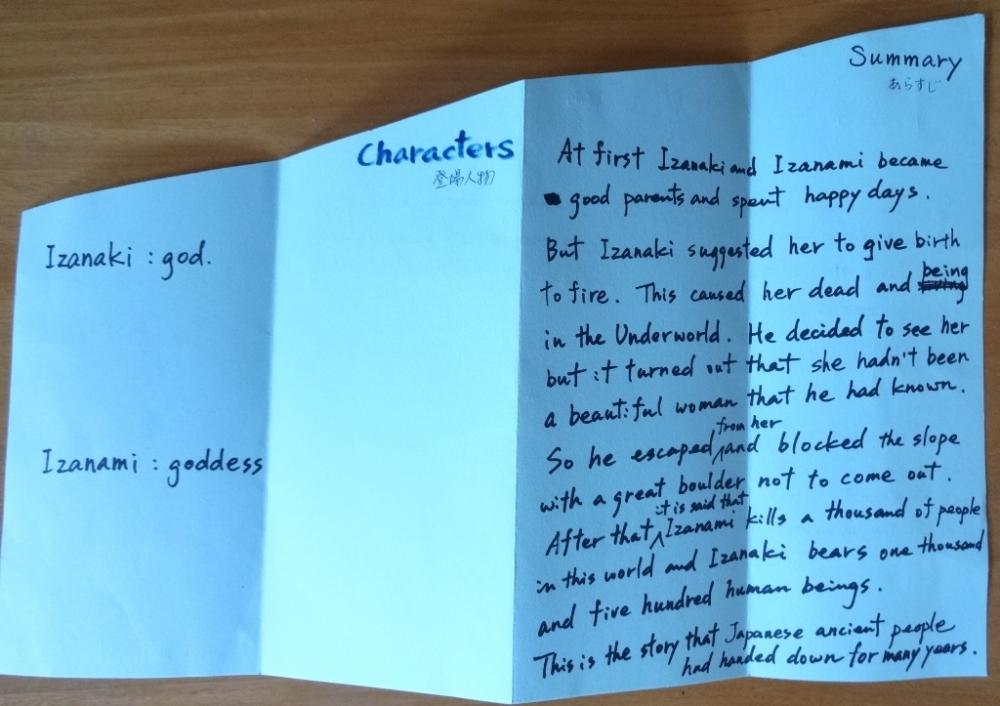 Characters
登場人物
Izanaki : god.
Izanami : goddess
Summary
あらすじ
At first Izanaki and Izanami became
good parents and spent happy days.
But Izanaki suggested her to give birth
to fire. This caused her dead and being
in the Underworld. He decided to see her
but it turned out that she hadn't been
a beautiful woman that he had known.
So he escaped from her and blocked the slope
with a great boulder not to come out.
After that it is said that Izanami kills a thousand of people
in this world and Izanaki bears one thousand
and five hundred human beings.
This is the story that Japanese ancient people
had handed down for many years.